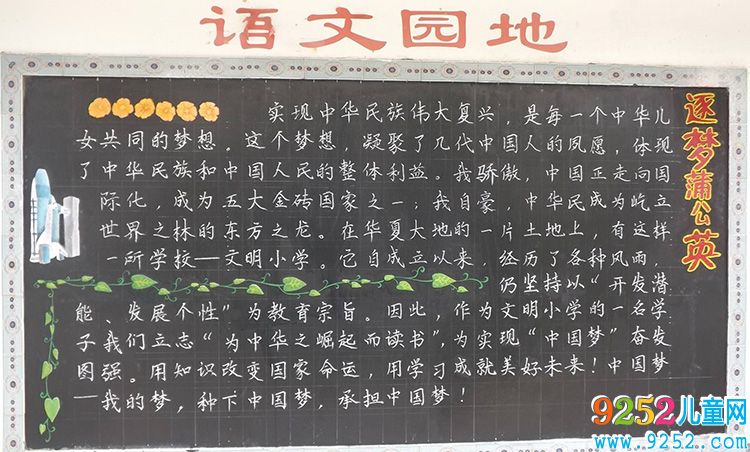 语文园地
逐梦蒲公英
实现中华民族伟大复兴，是每一个中华儿
女共同的梦想。这个梦想，凝聚了几代中国人的夙愿，体现
了中华民族和中国人民的整体利益。我骄傲，中国正走向国
际化，成为五大金砖国家之一；我自豪，中华民成为屹立
世界之林的东方之龙。在华夏大地的一片土地上，有这样
一所学校——文明小学。它自成立以来，经历了各种风雨，
仍坚持以“开发潜
能、发展个性”为教育宗旨。因此，作为文明小学的一名学
子我们立志“为中华之崛起而读书”，为实现“中国梦”奋发
图强。用知识改变国家命运，用学习成就美好未来！中国梦
——我的梦，种下中国梦，承担中国梦！
9252儿童网
www.9252.com